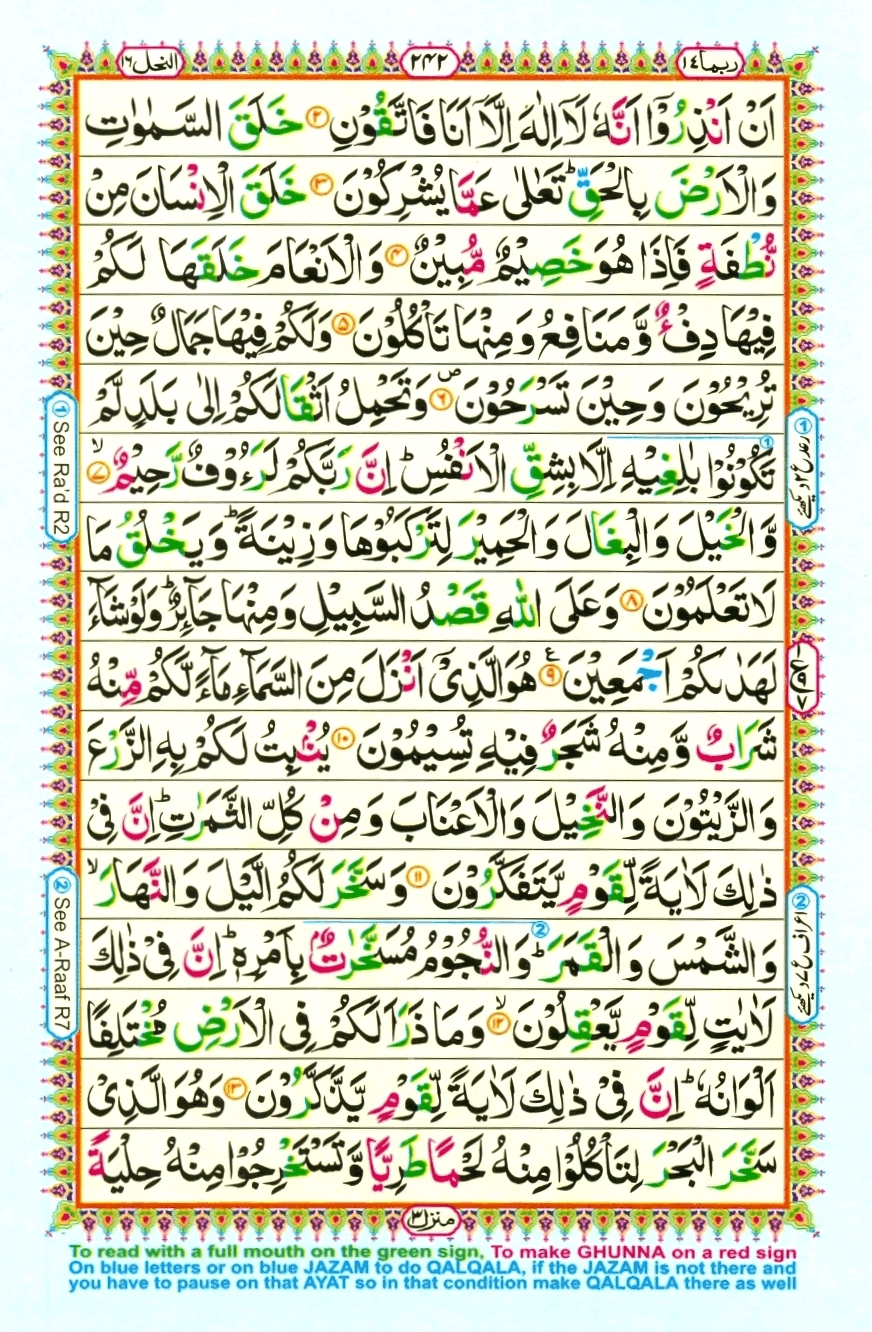 ربما ١٤
٢٤٢
النحل ١٦
اَنْ اَنْذِرُوْۤا اَنَّهٗ لَاۤ اِلٰهَ اِلَّاۤ اَنَا فَاتَّقُوْنِ ۝۲ خَلَقَ السَّمٰوٰتِ
وَالْاَرْضَ بِالْحَقِّ ؕ تَعٰلٰى عَمَّا يُشْرِكُوْنَ ۝۳ خَلَقَ الْاِنْسَانَ مِنْ
نُّطْفَةٍ فَاِذَا هُوَ خَصِيْمٌ مُّبِيْنٌ ۝۴ وَالْاَنْعَامَ خَلَقَهَا لَكُمْ
فِيْهَا دِفْءٌ وَّمَنَافِعُ وَمِنْهَا تَاْكُلُوْنَ ۝۵ وَلَكُمْ فِيْهَا جَمَالٌ حِيْنَ
تُرِيْحُوْنَ وَحِيْنَ تَسْرَحُوْنَ ۝۶ وَتَحْمِلُ اَثْقَالَكُمْ اِلٰى بَلَدٍ لَّمْ
تَكُوْنُوْا بٰلِغِيْهِ اِلَّا بِشِقِّ الْاَنْفُسِ ؕ اِنَّ رَبَّكُمْ لَرَءُوْفٌ رَّحِيْمٌ ۝۷
وَّالْخَيْلَ وَالْبِغَالَ وَالْحَمِيْرَ لِتَرْكَبُوْهَا وَزِيْنَةً ؕ وَيَخْلُقُ مَا
لَا تَعْلَمُوْنَ ۝۸ وَعَلَى اللّٰهِ قَصْدُ السَّبِيْلِ وَمِنْهَا جَآئِرٌ ؕ وَلَوْ شَآءَ
لَهَدٰىكُمْ اَجْمَعِيْنَ ۝۹ هُوَ الَّذِىْۤ اَنْزَلَ مِنَ السَّمَآءِ مَآءً لَّكُمْ مِّنْهُ
شَرَابٌ وَّمِنْهُ شَجَرٌ فِيْهِ تُسِيْمُوْنَ ۝۱۰ يُنْۢبِتُ لَكُمْ بِهِ الزَّرْعَ
وَالزَّيْتُوْنَ وَالنَّخِيْلَ وَالْاَعْنَابَ وَمِنْ كُلِّ الثَّمَرٰتِ ؕ اِنَّ فِىْ
ذٰلِكَ لَاٰيَةً لِّقَوْمٍ يَّتَفَكَّرُوْنَ ۝۱۱ وَسَخَّرَ لَكُمُ الَّيْلَ وَالنَّهَارَ ۙ
وَالشَّمْسَ وَالْقَمَرَ ؕ وَالنُّجُوْمُ مُسَخَّرٰتٌۢ بِاَمْرِهٖ ؕ اِنَّ فِىْ ذٰلِكَ
لَاٰيٰتٍ لِّقَوْمٍ يَّعْقِلُوْنَ ۝۱۲ وَمَا ذَرَاَ لَكُمْ فِى الْاَرْضِ مُخْتَلِفًا
اَلْوَانُهٗ ؕ اِنَّ فِىْ ذٰلِكَ لَاٰيَةً لِّقَوْمٍ يَّذَّكَّرُوْنَ ۝۱۳ وَهُوَ الَّذِىْ
سَخَّرَ الْبَحْرَ لِتَاْكُلُوْا مِنْهُ لَحْمًا طَرِيًّا وَّتَسْتَخْرِجُوْا مِنْهُ حِلْيَةً
① See Ra'd R2
② See A-Raaf R7
منزل ٣
To read with a full mouth on the green sign, To make GHUNNA on a red sign
On blue letters or on blue JAZAM to do QALQALA, if the JAZAM is not there and
you have to pause on that AYAT so in that condition make QALQALA there as well